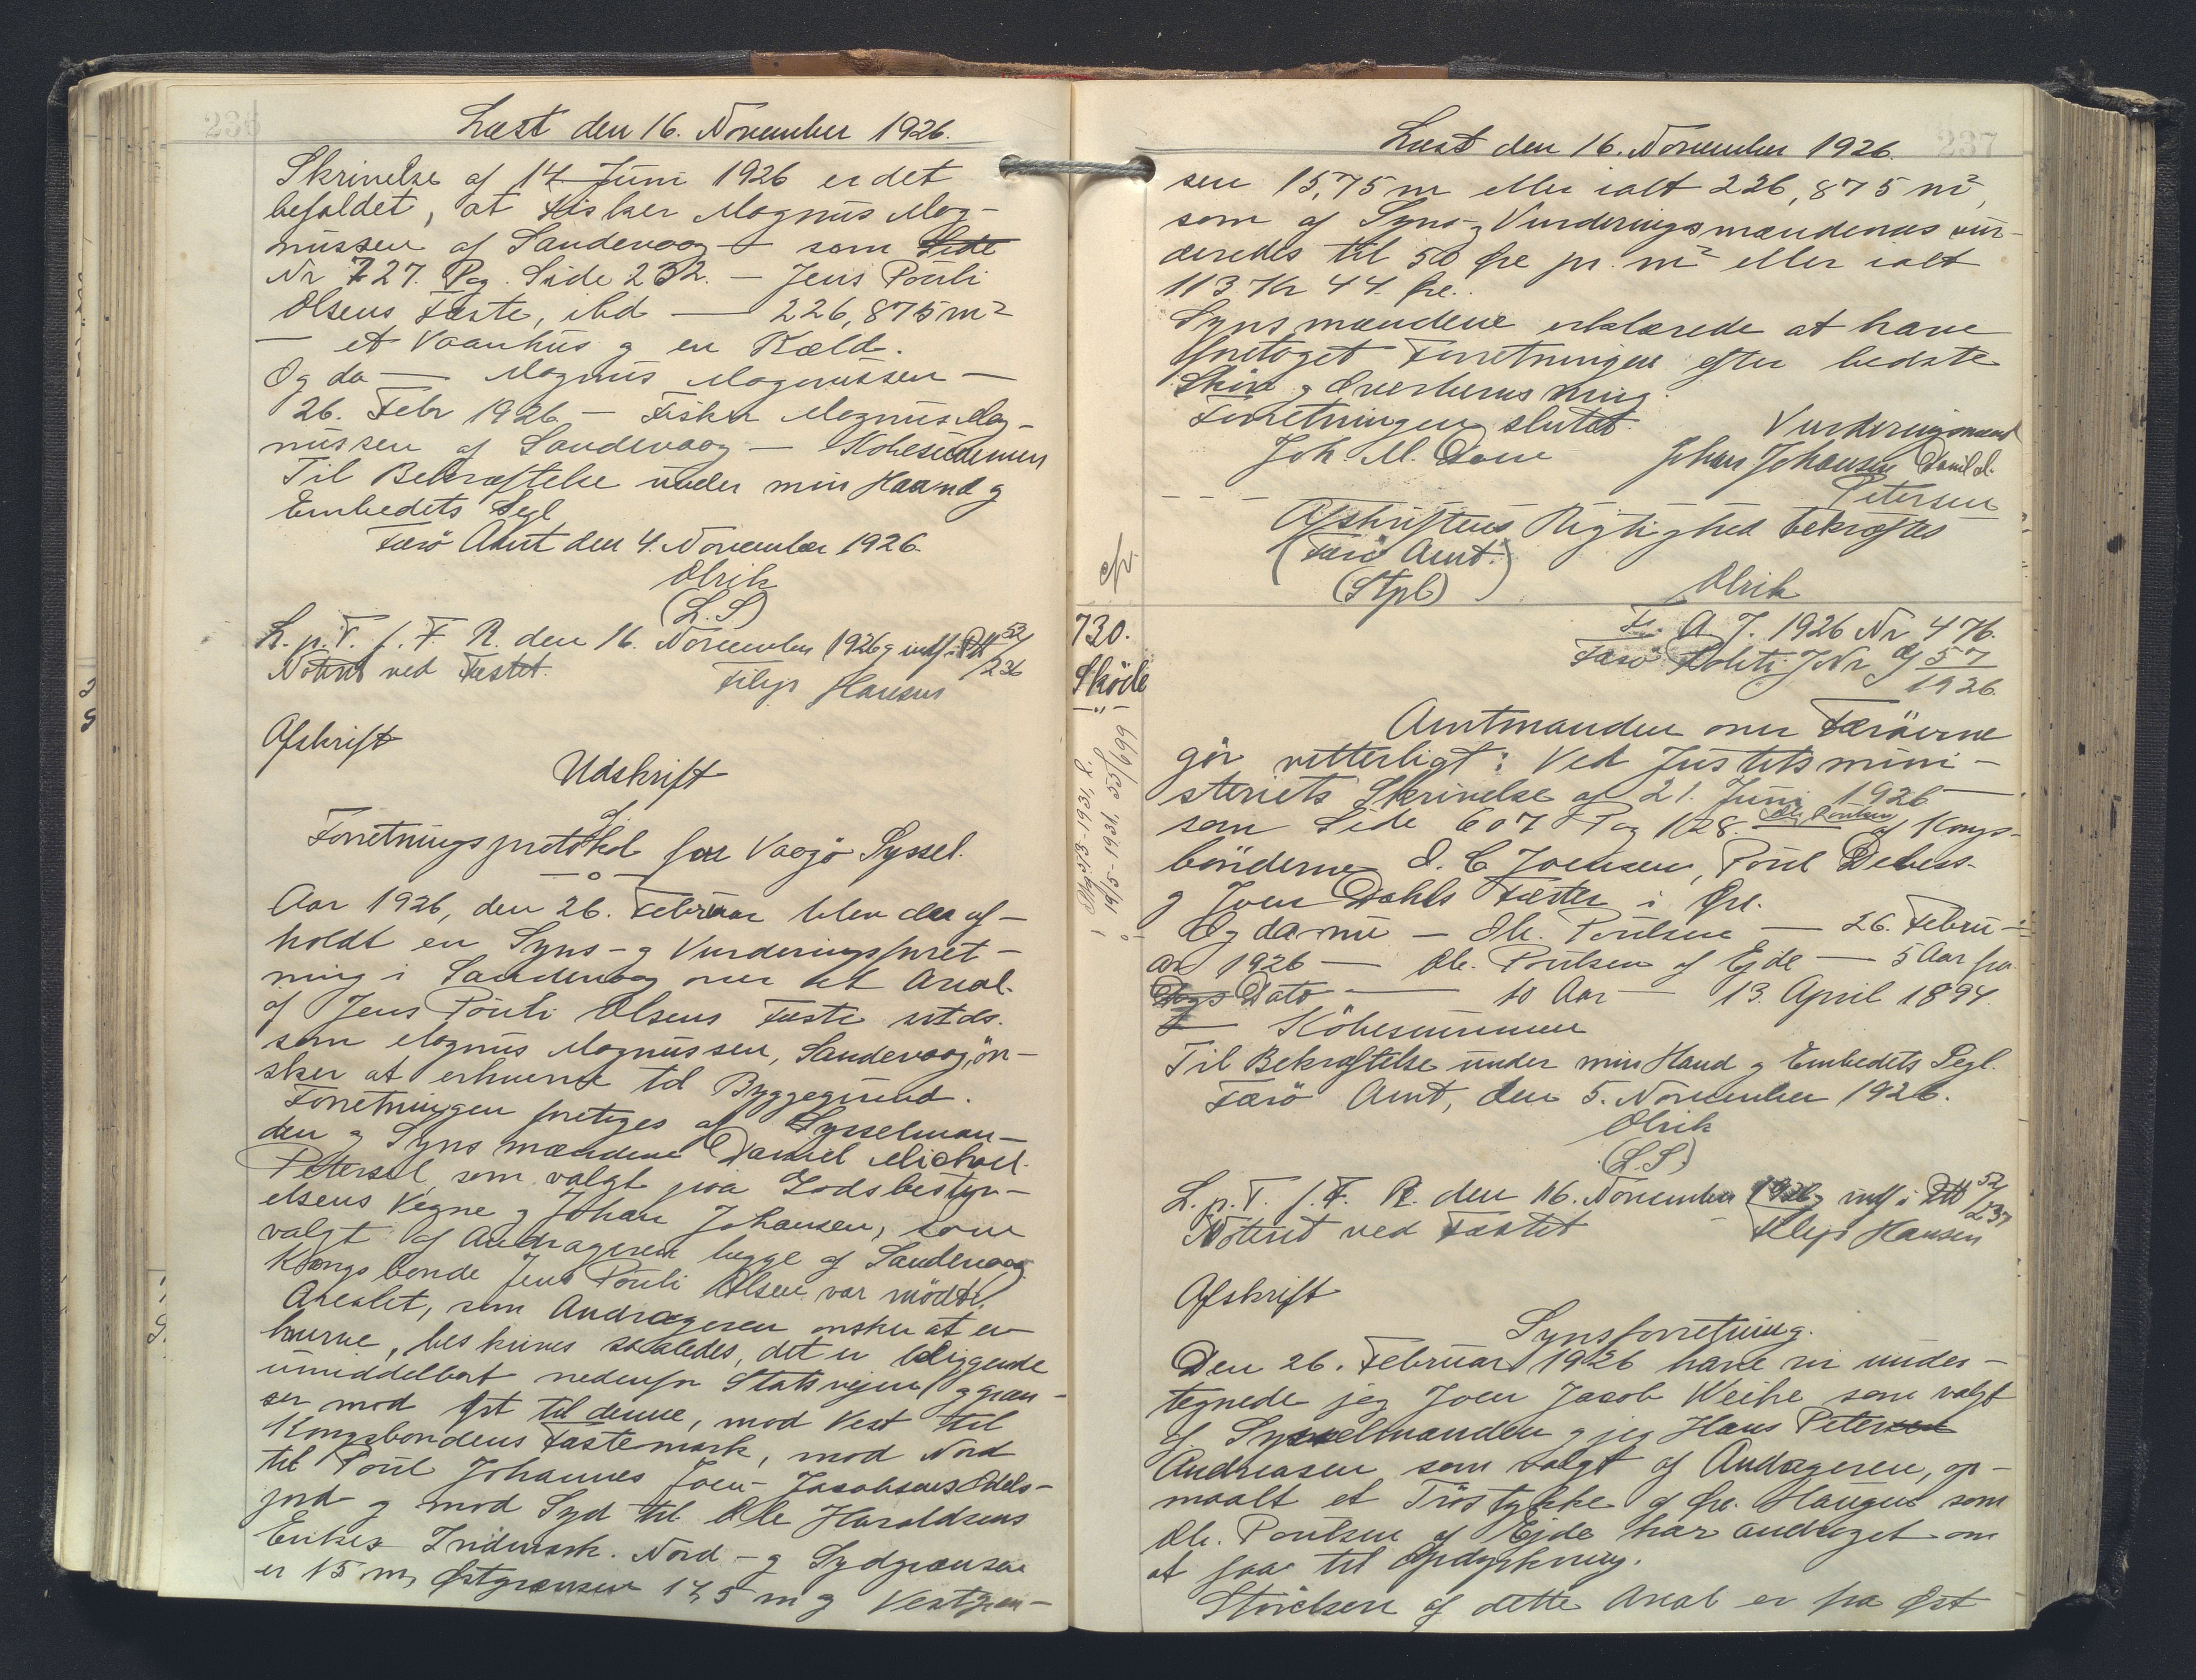 236
Læst den 16. November 1926.
Skrivelse af 14 Juni 1926 er det
befaldet, at Fisker Magnus Mag-
nussen af Sandevaag - som Side
Nr 727. Pag. Side 232. - Jens Pouli
Olsens Fæste, ibd — 226,875 m²
— et Vaanhus og en Kæld.
Og da — Magnus Magnussen —
26. Febr 1926 - Fisker Magnus Mag-
nussen af Sandevaag - Köbesummen
Til Bekræftelse under min Haand og
Embedets Segl
Færö Amt den 4. November 1926.
Olrik
(L.S)
L. p. T. f. F. R. den 16. November 1926 og indf. i Ptk 52/236
Noteret ved Fæstet.
Filip Hansen
Afskrift
Udskrift
af
Forretningsprotokol for Vaagö Syssel.
—o—
Aar 1926, den 26. Februar blev der af-
holdt en Syns- og Vurderingsforret-
ning i Sandevaag over et Areal
af Jens Pouli Olsens Fæste sstds.
som Magnus Magnussen, Sandevaag, ön-
sker at erhverve til Byggegrund.
Forretningen foretoges af Sysselman-
den og Synsmændene Daniel Michael
Petersen, som valgt paa Godsbesty-
elsens Vegne og Johan Johansen, som
valgt af Andrageren begge af Sandevaag
Kongsbonde Jens Pouli Olsen var mödt.
Arealet, som Andrageren önsker at er-
hverve, beskrives saaledes, det er beliggende
umiddelbart nedenfor Statsvejen og græn-
ser mod Øst til denne, mod Vest til
Kongsbondens Fæstemark, mod Nord
til Poul Johannes Joen Jacobsens Odels-
jord og mod Syd til Ole Haraldsens
Enkes Indmark. Nord- og Sydgrænsen
er 15 m, Østgrænsen 14,5 m og Vestgræn-
237
Læst den 16. November 1926.
sen 15,75 m eller ialt 226,875 m²,
som af Syns- og Vurderingsmændenes vur-
deredes til 50 Øre pr. m² eller ialt
113 Kr 44 Øre.
Synsmændene erklærede at have
foretaget Forretningen efter bedste
Skön og Overbevisning.
Forretningen sluttet.
Vurderingsmænd
Joh. M. Dam Johan Johansen Daniel M.
Petersen
- - - Afskriftens Rigtighed bekræftes
(Færö Amt.)
(Stpl) Olrik
cfr.
730.
Sköde
—"—
Fr. A. J. 1926 Nr 476.
Færö Politi J Nr 57
1926.
Amtmanden over Færöerne
gör vitterligt: Ved Justitsmini-
steriets Skrivelse af 21. Juni 1926 —
som Side 607 Pag 128. Ole Poulsen af Kongs-
bönderne J. C Joensen, Poul Debess
og Joen Dahls Fæster i Øre.
Og da nu — Ole. Poulsen — 26. Febru-
ar 1926 — Ole. Poulsen af Ejde — 5 Aar fra
Dags Dato — 10 Aar — 13. April 1894.
— Köbesummen
Til Bekræftelse under min Haand og Embedets Segl.
Færö Amt, den 5. November 1926.
Olrik
(L.S)
L. p. T. f. F. R. den 16. November 1926 og indf i Ptk 52/237
Noteret ved Fæstet Filip Hansen
Afskrift
Synsforretning.
Den 26. Februar 1926 have vi under-
tegnede jeg Joen Jacob Weihe som valgt
af Sysselmanden og jeg Hans Petersen
Andreasen som valgt af Andrageren, op-
maalt et Tröstykke af Øre Haugen som
Ole. Poulsen af Ejde har andraget om
at faa til Opdyrkning.
Störelsen af dette Areal er fra Øst